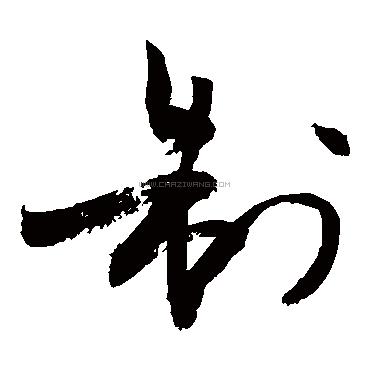 制
WWW.CHAZIWANG.COM